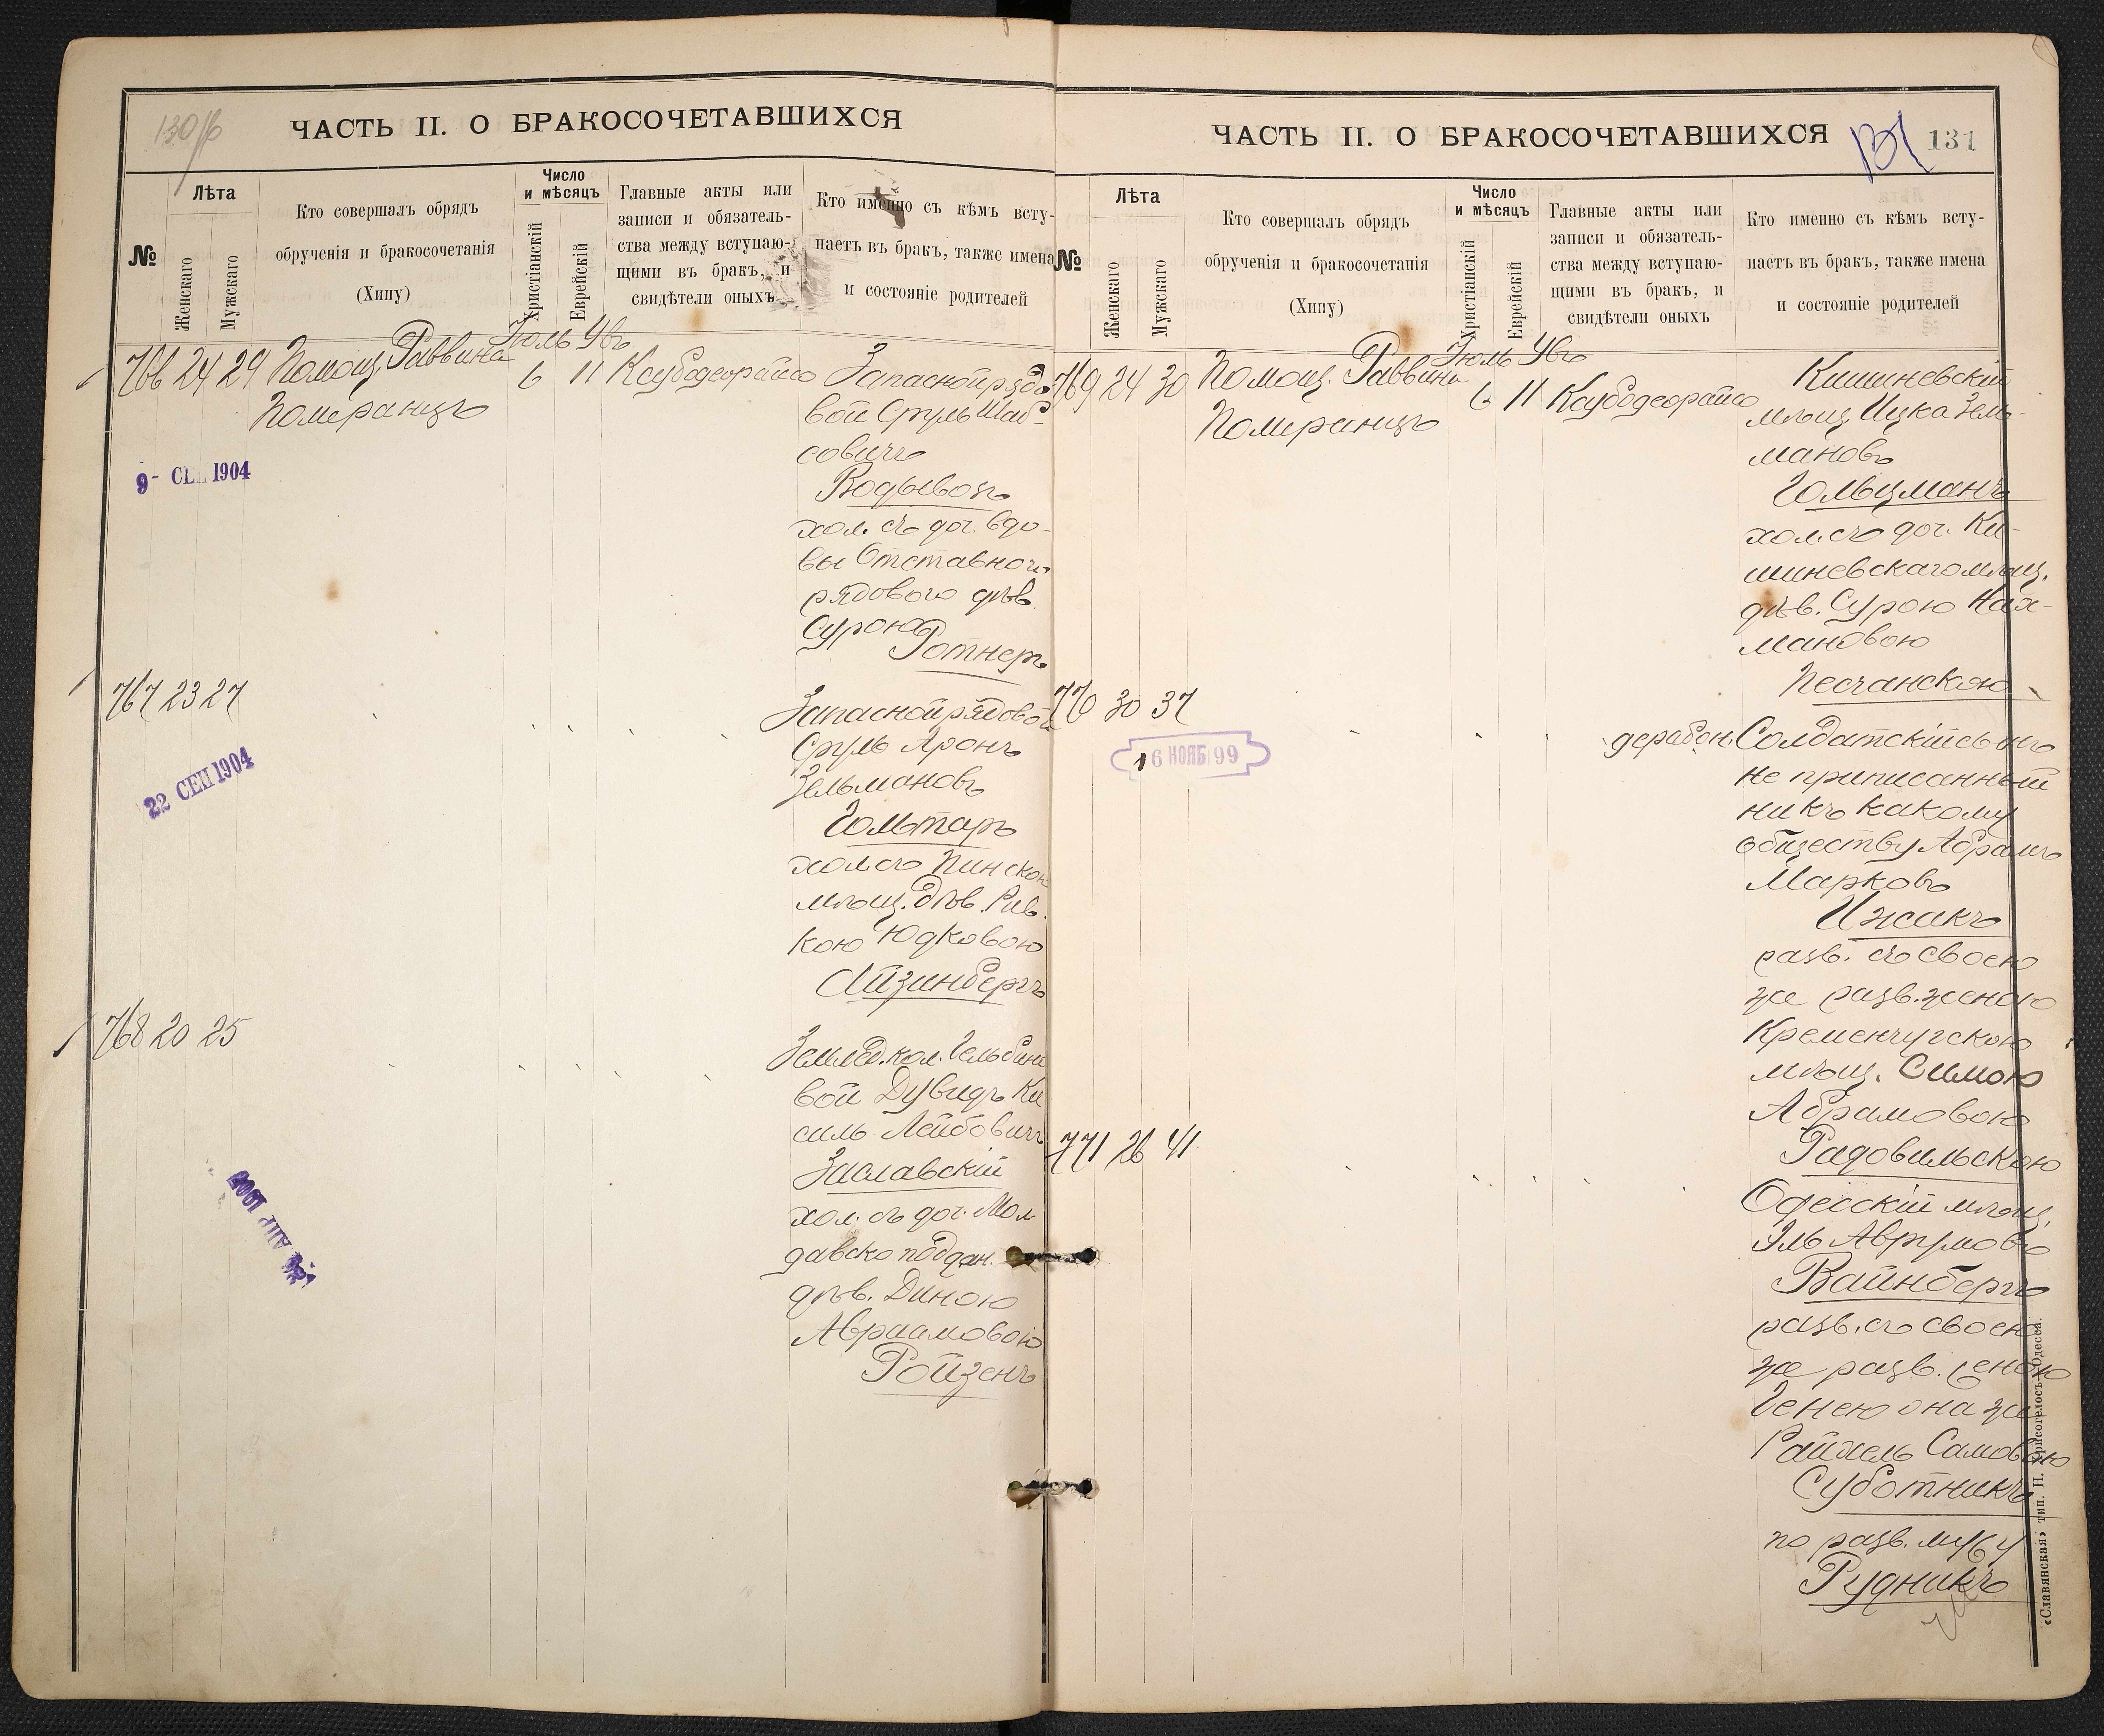 130/б
ЧАСТЬ II. О БРАКОСОЧЕТАВШИХСЯ
№
Лѣта
Женскаго
Мужскаго
Кто совершалъ обрядъ
обрученія и бракосочетанія
(Хипу)
Число
и мѣсяцъ
Христіанскій
Еврейскій
Главные акты или
записи и обязатель-
ства между вступаю-
щими въ бракъ, и
свидѣтели оныхъ
Кто именно съ кѣмъ всту-
паетъ въ бракъ, также имена
и состояніе родителей
766 24 29 Помощ. Раввина
Померанцъ
Іюль
6 11
Запасной рядо-
вой Сруль Шаб-
совичъ
Водывозъ
хол. съ доч. вдо-
вы Отставного
рядового дѣв.
Сурою
Ротнеръ
9- СЕ 1904
767 23 27
Запасной рядовой
Сруль Аронъ
Зельмановъ
Гольтаръ
хол. съ Пинскою
мѣщ. дѣв. Рив-
кою Юдковою
Айзинбергъ
22 СЕП 1904
768 20 25
Землед. кол.
вой Дувидъ Ки
силь Лейбовичъ
Заславскій
хол. съ доч. Мол-
давско поддан.
дѣв. Диною
Авраамовою
Ройзенъ
АПР
ЧАСТЬ II. О БРАКОСОЧЕТАВШИХСЯ
131 131
№
Лѣта
Женскаго
Мужскаго
Кто совершалъ обрядъ
обрученія и бракосочетанія
(Хипу)
Число
и мѣсяцъ
Христіанскій
Еврейскій
Главные акты или
записи и обязатель-
ства между вступаю-
щими въ бракъ, и
свидѣтели оныхъ
Кто именно съ кѣмъ всту-
паетъ въ бракъ, также имена
и состояніе родителей
769 24 30 Помощ. Раввина
Померанцъ
Іюль
6 11
Кишиневскій
мѣщ. Ицка Зель-
мановъ
Гольцманъ
хол. съ доч. Ки-
шиневскаго мѣщ.
дѣв. Сурою Нах-
мановою
Песчанскою
770 30 37
16 НОЯБ 99
Солдатскій сынъ
не приписанный
ни къ какому
обществу Абрамъ
Марковъ
Ижакъ
разв. съ своею
же разв. женою
Кременчугскою
мѣщ. Симою
Абрамовою
Радовильскою
771 26 41
Одесскій мѣщ.
Эль Аврумовъ
Вайнбергъ
разв. съ своею
же разв. женою
Генею она же
Райхель Самов
Суботникъ
по разв. мужу
Рудникъ
«Славянская» тип. Н. Хрисогелосъ Одесса.